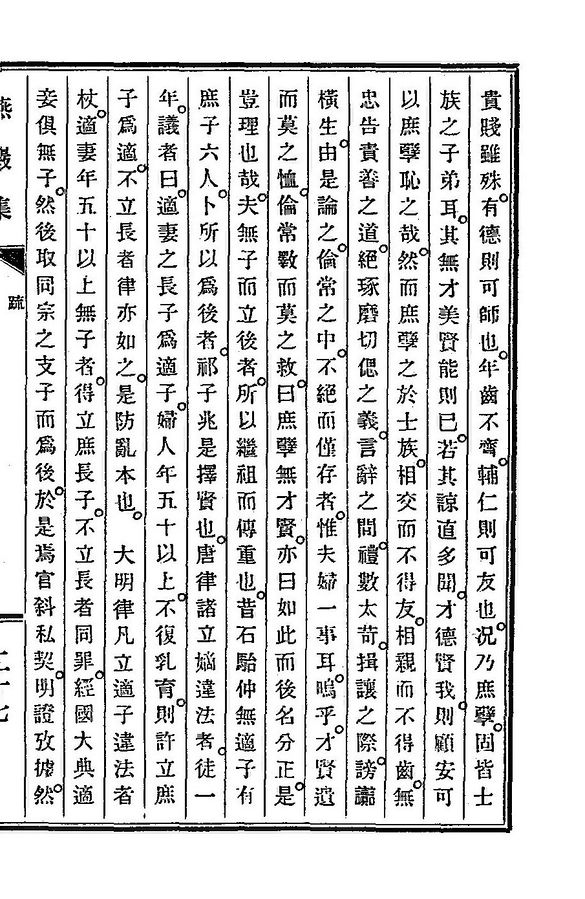 貴賤雖殊有德則可師也年齒不齊輔仁則可友也况乃庶孽固皆士
族之子弟耳其無才美賢能則已若其諒直多聞才德賢我則顧安可
以庶孽恥之哉然而庶孽之於士族相交而不得友相親而不得齒無
忠告責善之道絕琢磨切偲之義言辭之間禮數太苛揖讓之際謗讟
橫生由是論之倫常之中不絕而僅存者惟夫婦一事耳嗚乎才賢遺
而莫之恤倫常斁而莫之救曰庶孽無才賢亦曰如此而後名分正是
豈理也哉夫無子而立後者所以繼祖而傳重也昔石駘仲無適子有
庶子六人卜所以爲後者祁子兆是擇賢也唐律諸立嫡違法者徒一
年議者曰適妻之長子爲適子婦人年五十以上不復乳育則許立庶
子爲適不立長者律亦如之是防亂本也　大明律凡立適子違法者
杖適妻年五十以上無子者得立庶長子不立長者同罪經國大典適
妾俱無子然後取同宗之支子而爲後於是焉官斜私契明證攷據然
燕巖集
疏
二十七